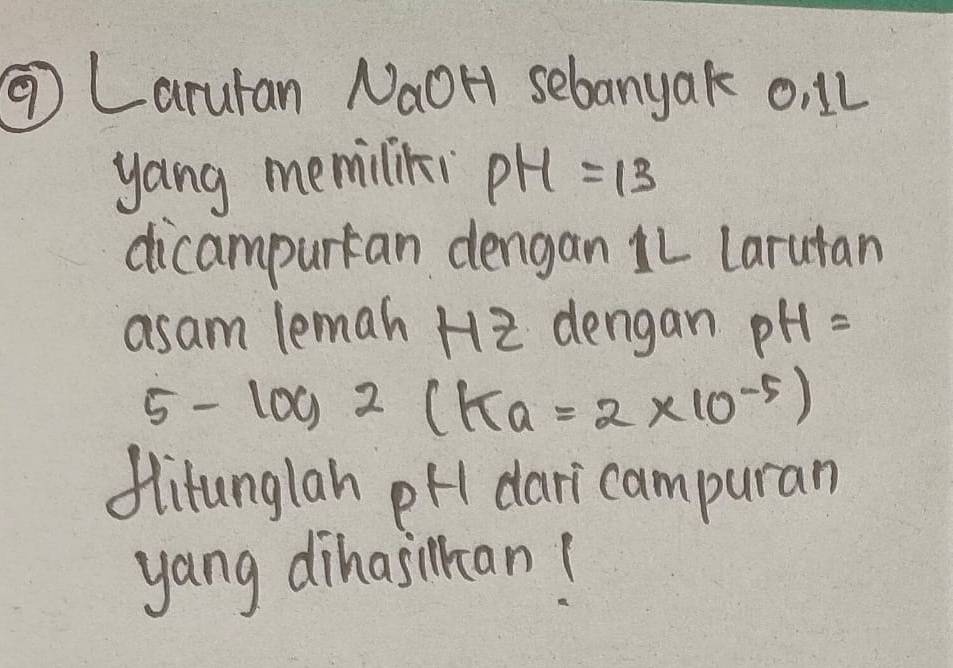 9 Larutan NaOH sebanyak 0,1L
yang memiliki pH = 13
dicampurkan dengan 1L Larutan
asam lemah HZ dengan pH =
5 - log 2 (Ka = 2 x 10⁻⁵)
Hitunglah pH dari campuran
yang dihasilkan !